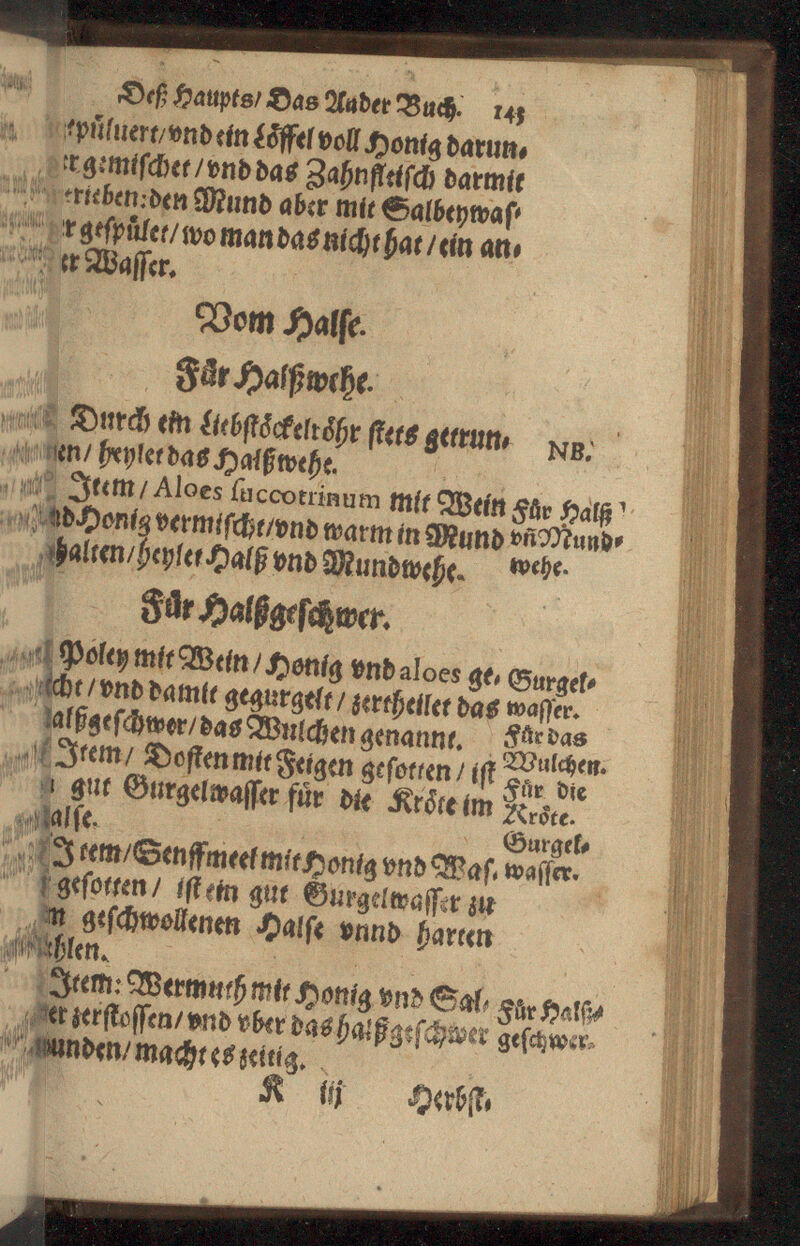 Deß Haupts/ Das Ander Buch. 143
epůluert/vnd ein Lôffel voll Honig darun⸗
er gemischet/vnd das Zahnfleisch darmit
erieben: den Mund aber mit Salbeywas⸗
er gespůlet/ wo man das nicht hat/ein an⸗
er Wasser.
Vom Halse.
Für Halßwehe.
Durch ein Liebstôckelrôhr stets getrun⸗
NB.
en/ heylet das Halßwehe.
Item/ Aloes succotrinum mit Wein
Für Halß
nd Honig vermischt/vnd warm in Mund
vñ Mund⸗
halten/heylet Halß vnd Mundwehe.
wehe.
Für Halßgeschwer.
Poley mit Wein/ Honig vnd aloes ge⸗
Gurgel⸗
cht/vnd damit gegurgelt/ zertheilet das
wasser.
alßgeschwer/das Wulchen genannt.
Für das
Item/ Dosten mit Feigen gesotten/ ist
Wulchen.
gut Gurgelwasser fůr die Krôte im
Für die
Krôte.
alse.
Gurgel⸗
Item/Senffmeel mit Honig vnd Was⸗
wasser.
gesotten/ ist ein gut Gurgelwasser zu
m geschwollenen Halse vnnd harten
hlen.
Item: Wermuth mit Honig vnd Sal⸗
Für Halß⸗
er zerstossen/vnd vber das halßgeschwer
geschwer.
unden/macht es zeitig.
K iij Herbst⸗